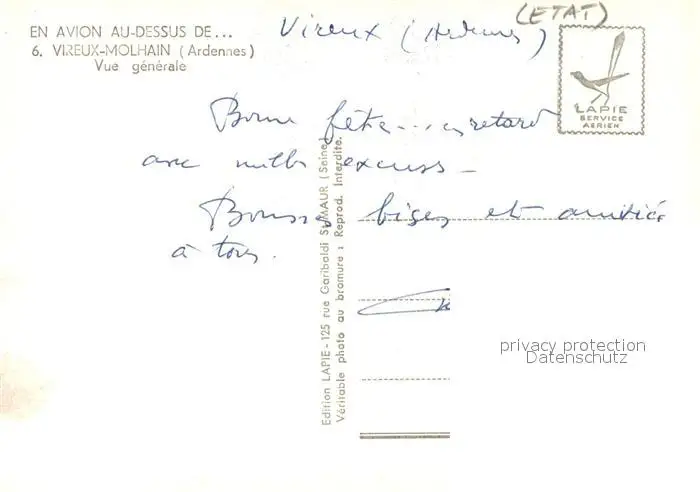 (ETAT)
EN AVION AU-DESSUS DE...
6. VIREUX-MOLHAIN (Ardennes)
Vue générale
Vireux (Ardennes)
LAPIE
SERVICE
AERIEN
Bonne fête... en retard
avec mille excuses -
Bonnes bises et amitiés
à tous.
Edition LAPIE - 125 rue Garibaldi St-MAUR (Seine)
Véritable photo au bromure : Reprod. Interdite.
privacy protection
Datenschutz